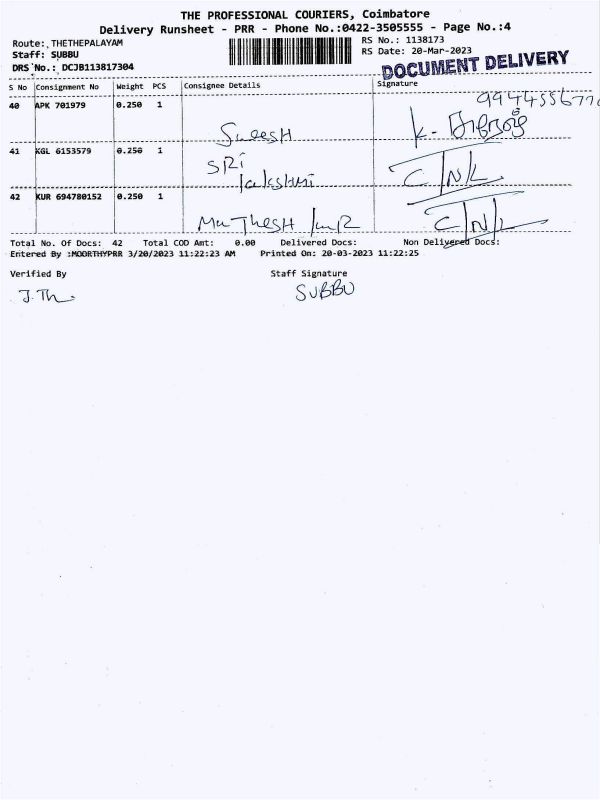 THE PROFESSIONAL COURIERS, Coimbatore
Delivery Runsheet - PRR - Phone No.:0422-3505555 - Page No.:4
Route: THETHEPALAYAM
Staff: SUBBU
DRS No.: DCJB113817304
RS No.: 1138173
RS Date: 20-Mar-2023
DOCUMENT DELIVERY
S No Consignment No Weight PCS Consignee Details Signature
40 APK 701979 0.250 1 Suresh
41 KGL 6153579 0.250 1 SRi lakshmi C/N/L
42 KUR 694780152 0.250 1 MuThesH C/N/L
Total No. Of Docs: 42 Total COD Amt: 0.00 Delivered Docs: Non Delivered Docs:
Entered By :MOORTHYPRR 3/20/2023 11:22:23 AM Printed On: 20-03-2023 11:22:25
Verified By Staff Signature
SUBBU